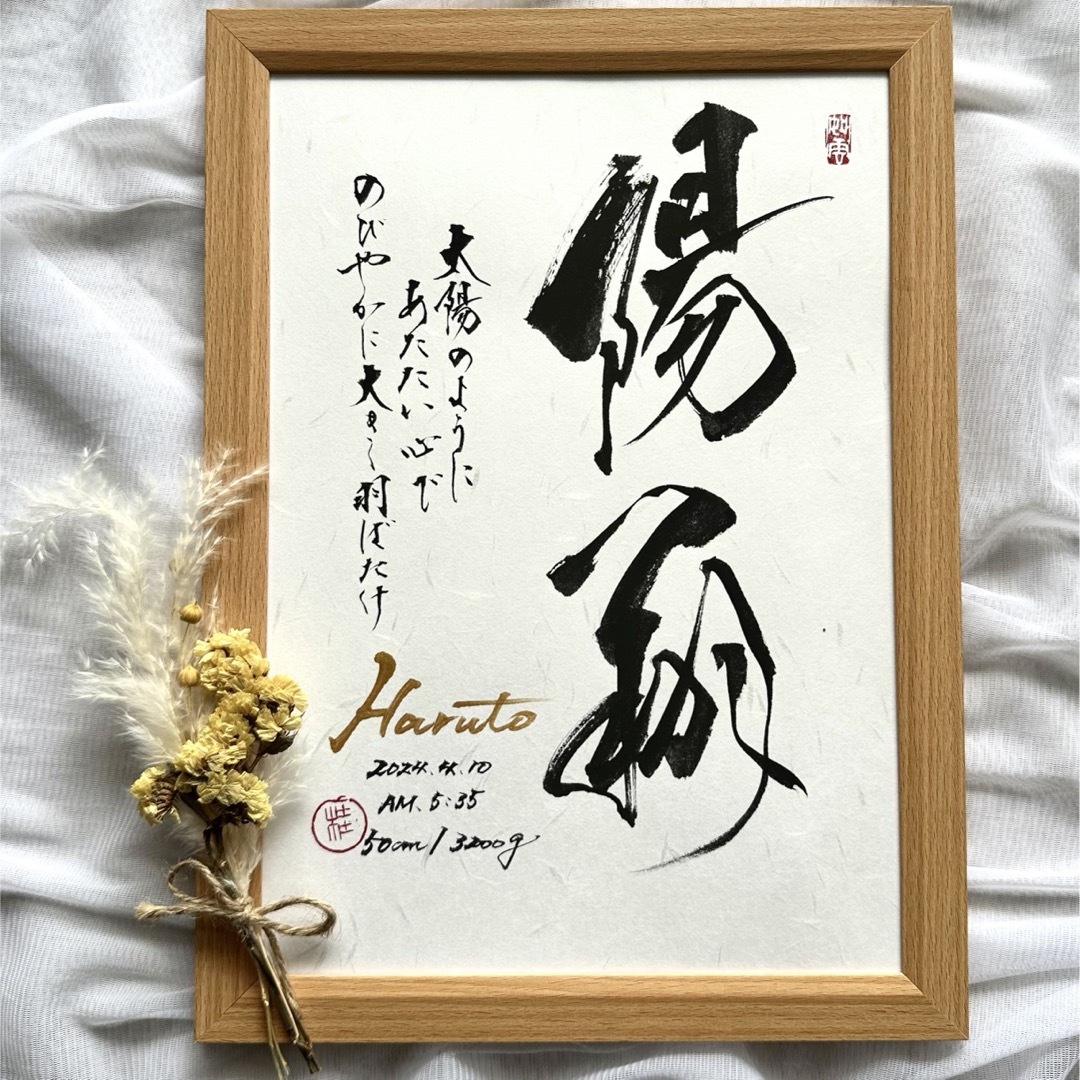 陽翔
太陽のように
あたたかい心で
のびやかに大きく羽ばたけ
Haruto
2024.4.10
AM.5:35
50cm/3200g